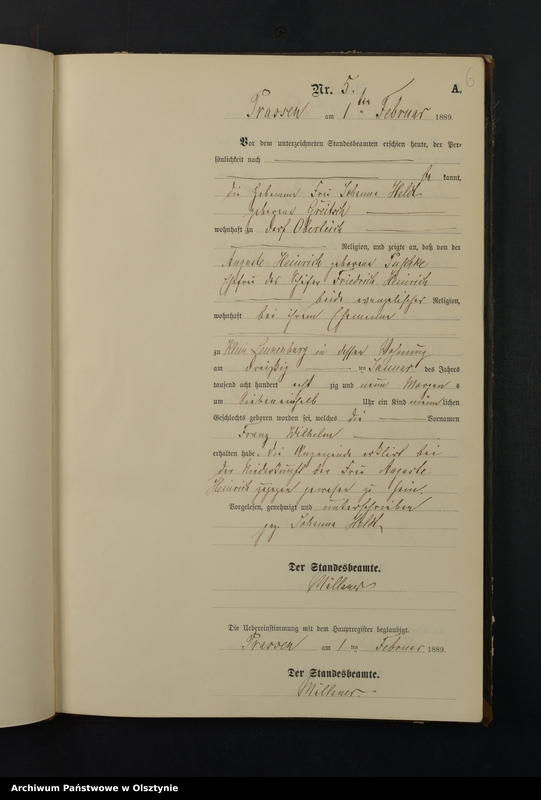 6
Nr. 5. A.
Prassen am 1ten Februar 1889.
Vor dem unterzeichneten Standesbeamten erschien heute, der Per-
sönlichkeit nach
be kannt,
die Hebamme Frau Johanna Heldt
geborene
wohnhaft zu Dorf
Religion, und zeigte an, daß von der
Auguste Heinrich geborene
Ehefrau des Schäfer Friedrich Heinrich
beide evangelischer Religion,
wohnhaft bei ihrem Ehemanne
zu Klein in dessen Wohnung
am dreißig ten Januar des Jahres
tausend acht hundert acht zig und neun Morgens
um siebeneinhalb Uhr ein Kind männ lichen
Geschlechts geboren worden sei, welches die Vornamen
Franz Wilhelm
erhalten habe. Die Anzeigende erklärt bei
der Niederkunft der Frau Auguste
Heinrich zugegen gewesen zu sein.
Vorgelesen, genehmigt und unterschrieben
gez. Johanna Heldt
Der Standesbeamte.
Die Uebereinstimmung mit dem Hauptregister beglaubigt.
Prassen am 1 ten Februar 1889.
Der Standesbeamte.
Archiwum Państwowe w Olsztynie